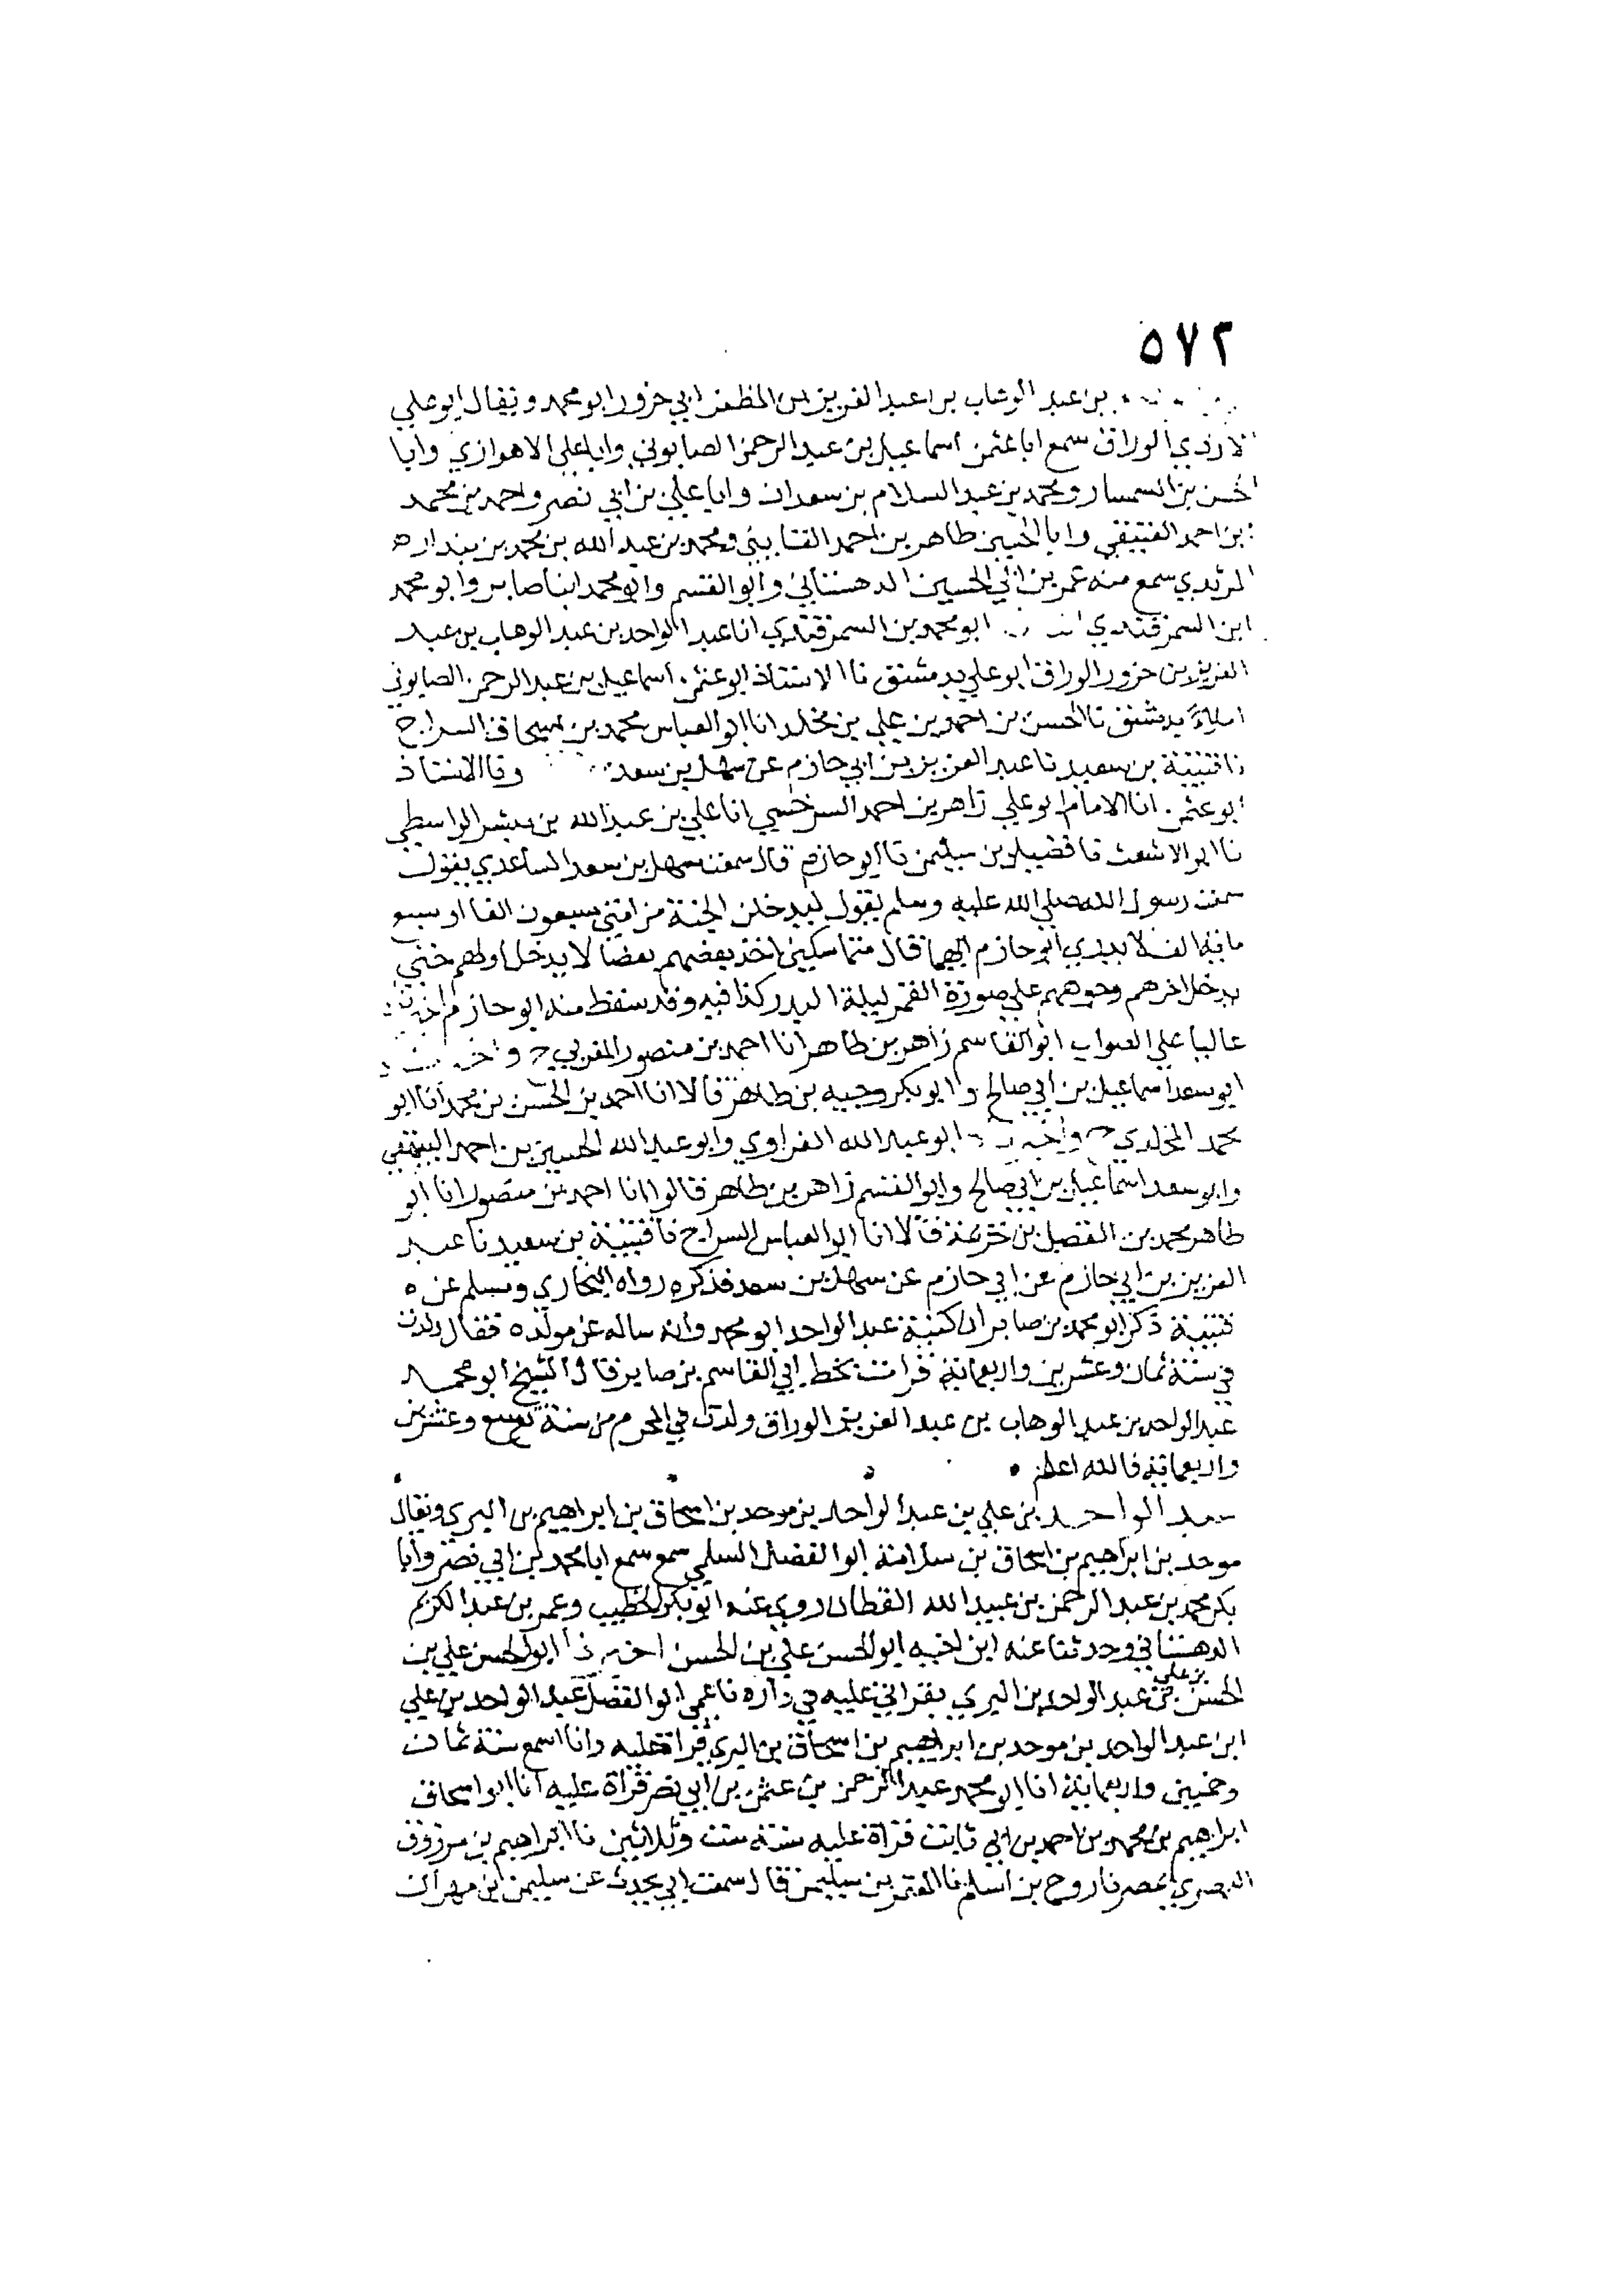 ٥٧٢
بن عبد الوهاب بن عبد العزيز بن المظفر ابي حزور ابو محمد ويقال ابو علي
الازدي الوراق سمع ابا عثمن اسماعيل بن عبد الرحمن الصابوني وابا علي الاهوازي وابا
الحسن بن السمسار ومحمد بن عبد السلام بن سعدان وابا علي بن ابي نصر واحمد بن محمد
بن احمد العتيقي وابا الحسين طاهر بن احمد القايني ومحمد بن عبد الله بن محمد بن بندار
المرندي سمع منه عمر بن ابي الحسين الدهستاني وابو القسم وابو محمد ابنا صابر وابو محمد
ابن السمرقندي ابو محمد بن السمرقندي انا عبد الواحد بن عبد الوهاب بن عبد
العزيز بن حزور الوراق ابو علي بدمشق نا الاستاذ ابو عثمن اسماعيل بن عبد الرحمن الصابوني
املاء بدمشق نا الحسن بن احمد بن علي بن مخلد انا ابو العباس محمد بن اسحاق السراج
نا قتيبة بن سعيد نا عبد العزيز بن ابي حازم عن سهل بن سعد ونا الاستاذ
ابو عثمن انا الامام ابو علي زاهر بن احمد السرخسي انا علي بن عبد الله بن مبشر الواسطي
نا ابو الاشعث نا فضيل بن سليمن نا ابو حازم قال سمعت سهل بن سعد الساعدي يقول
سمعت رسول الله صلي الله عليه وسلم يقول ليدخلن الجنة من امتي سبعون الفا او سبع
ماية الف لا يدري ابو حازم ايهما قال متماسكين اخذ بعضهم بعضا لا يدخل اولهم حتي
يدخل اخرهم وجوههم علي صورة القمر ليلة البدر كذا فيه وقد سقط منه ابو حازم
عاليا علي الصواب ابو القاسم زاهر بن طاهر انا احمد بن منصور المغربي ح
ابو سعد اسماعيل بن ابي صالح وابو بكر وجيه بن طاهر قالا انا احمد بن الحسن بن محمد انا ابو
محمد المخلدي ح ابو عبد الله الفراوي وابو عبد الله الحسين بن احمد البيهقي
وابو سعد اسماعيل بن ابي صالح وابو القسم زاهر بن طاهر قالوا انا احمد بن منصور انا ابو
طاهر محمد بن الفضل بن خزيمة قالا انا ابو العباس السراج نا قتيبة بن سعيد نا عبد
العزيز بن ابي حازم عن ابي حازم عن سهل بن سعد فذكره رواه البخاري ومسلم عن
قتيبة ذكر ابو محمد بن صابر ان كنية عبد الواحد ابو محمد وانه ساله عن مولده فقال ولدت
في سنة ثمان وعشرين واربعماية قرات بخط ابي القاسم بن صابر قال الشيخ ابو محمد
عبد الواحد بن عبد الوهاب بن عبد العزيز الوراق ولدت في المحرم من سنة تسع وعشرين
واربعماية فالله اعلم
عبد الواحد بن علي بن عبد الواحد بن موحد بن اسحاق بن ابراهيم بن البري ويقال
موحد بن ابراهيم بن اسحاق بن سلامة ابو الفضل السلمي سمع سمع ابا محمد بن ابي نصر وابا
بكر محمد بن عبد الرحمن بن عبيد الله القطان روي عنه ابو بكر الخطيب وعمر بن عبد الكريم
الدهستاني وحدثنا عنه ابن اخيه ابو الحسن علي بن الحسن ابو الحسن علي بن
الحسن بن علي بن عبد الواحد بن البري بقراتي عليه في داره نا عمي ابو الفضل عبد الواحد بن علي
ابن عبد الواحد بن موحد بن ابراهيم بن اسحاق بن البري قراة عليه وانا اسمع سنة ثمان
وخمسين واربعماية انا ابو محمد عبد الرحمن بن عثمن بن ابي نصر قراة عليه انا ابو اسحاق
ابراهيم بن محمد بن احمد بن ابي ثابت قراة عليه سنة ست وثلاثين نا ابراهيم بن مرزوق
البصري بمصر نا روح بن اسلم نا المعتمر بن سليمن قال سمعت ابي يحدث عن سليمن ابن مهران